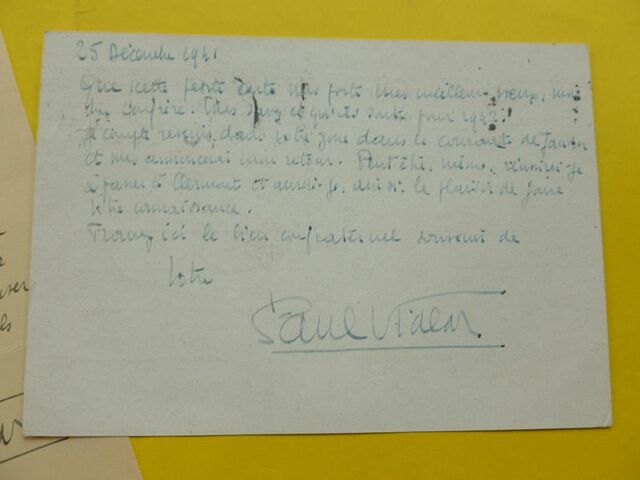 25 Décembre 1941
Que cette petite carte vous porte mes meilleurs vœux, mon
cher confrère. Vous savez ce qu'ils sont pour 1942!
Je compte revenir dans votre zone dans le courant de Janvier
et vous annoncerai mon retour. Peut-être, même, réussirai-je
à passer à Clermont et aurai-je, ainsi, le plaisir de faire
votre connaissance.
Trouvez ici le bien confraternel souvenir de
Votre
Paul Vialar